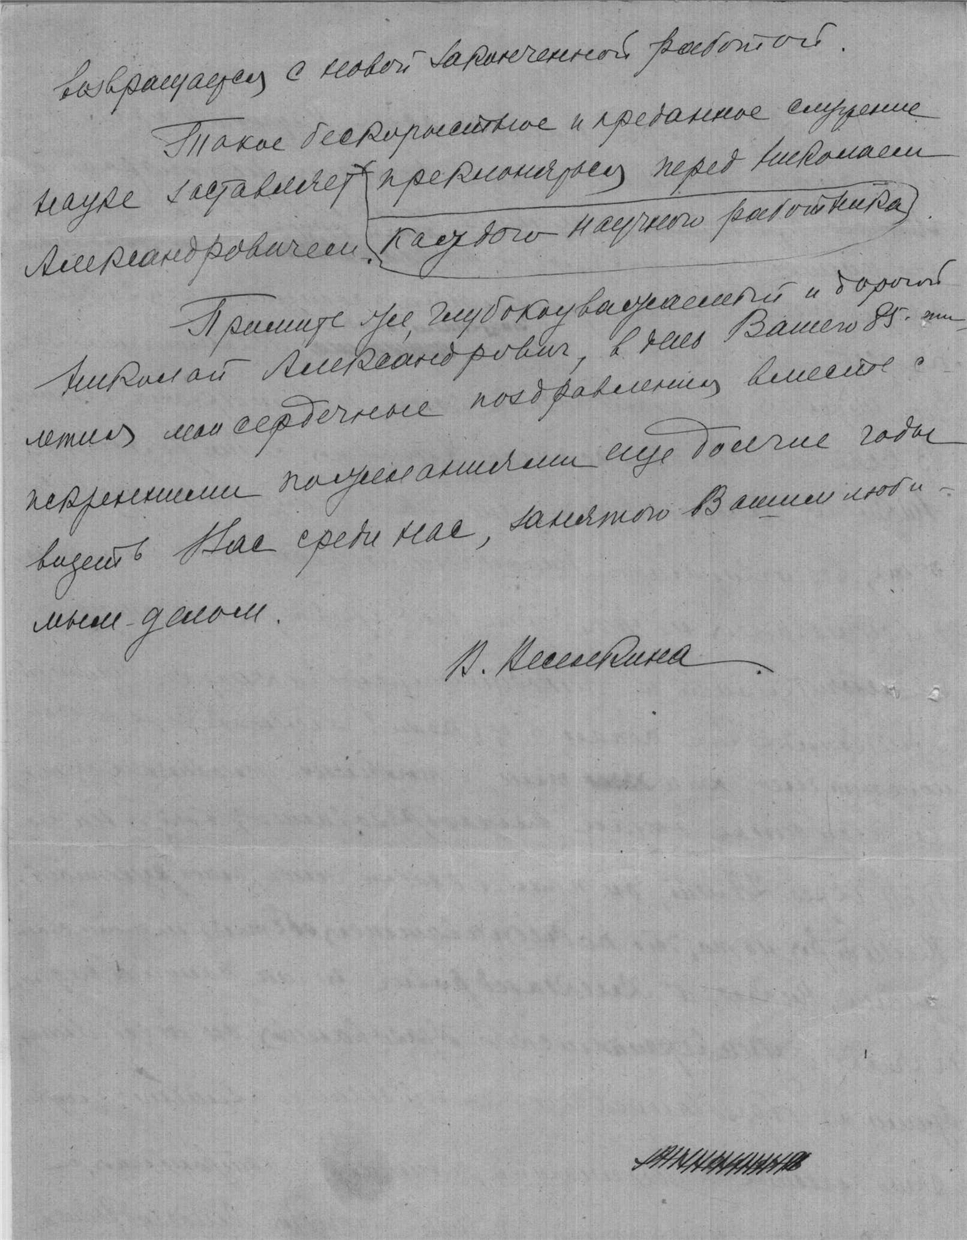 возвращался с новой законченной работой.
Такое бескорыстное и преданное служение
науке заставляет преклоняться перед Николаем
Александровичем. каждого научного работника
Примите же, глубокоуважаемый и дорогой
Николай Александрович, в день Вашего 85-ти-
летия мои сердечные поздравления вместе с
искренними пожеланиями еще долгие годы
видеть Вас среди нас, занятого Вашим люби-
мым делом.
В.